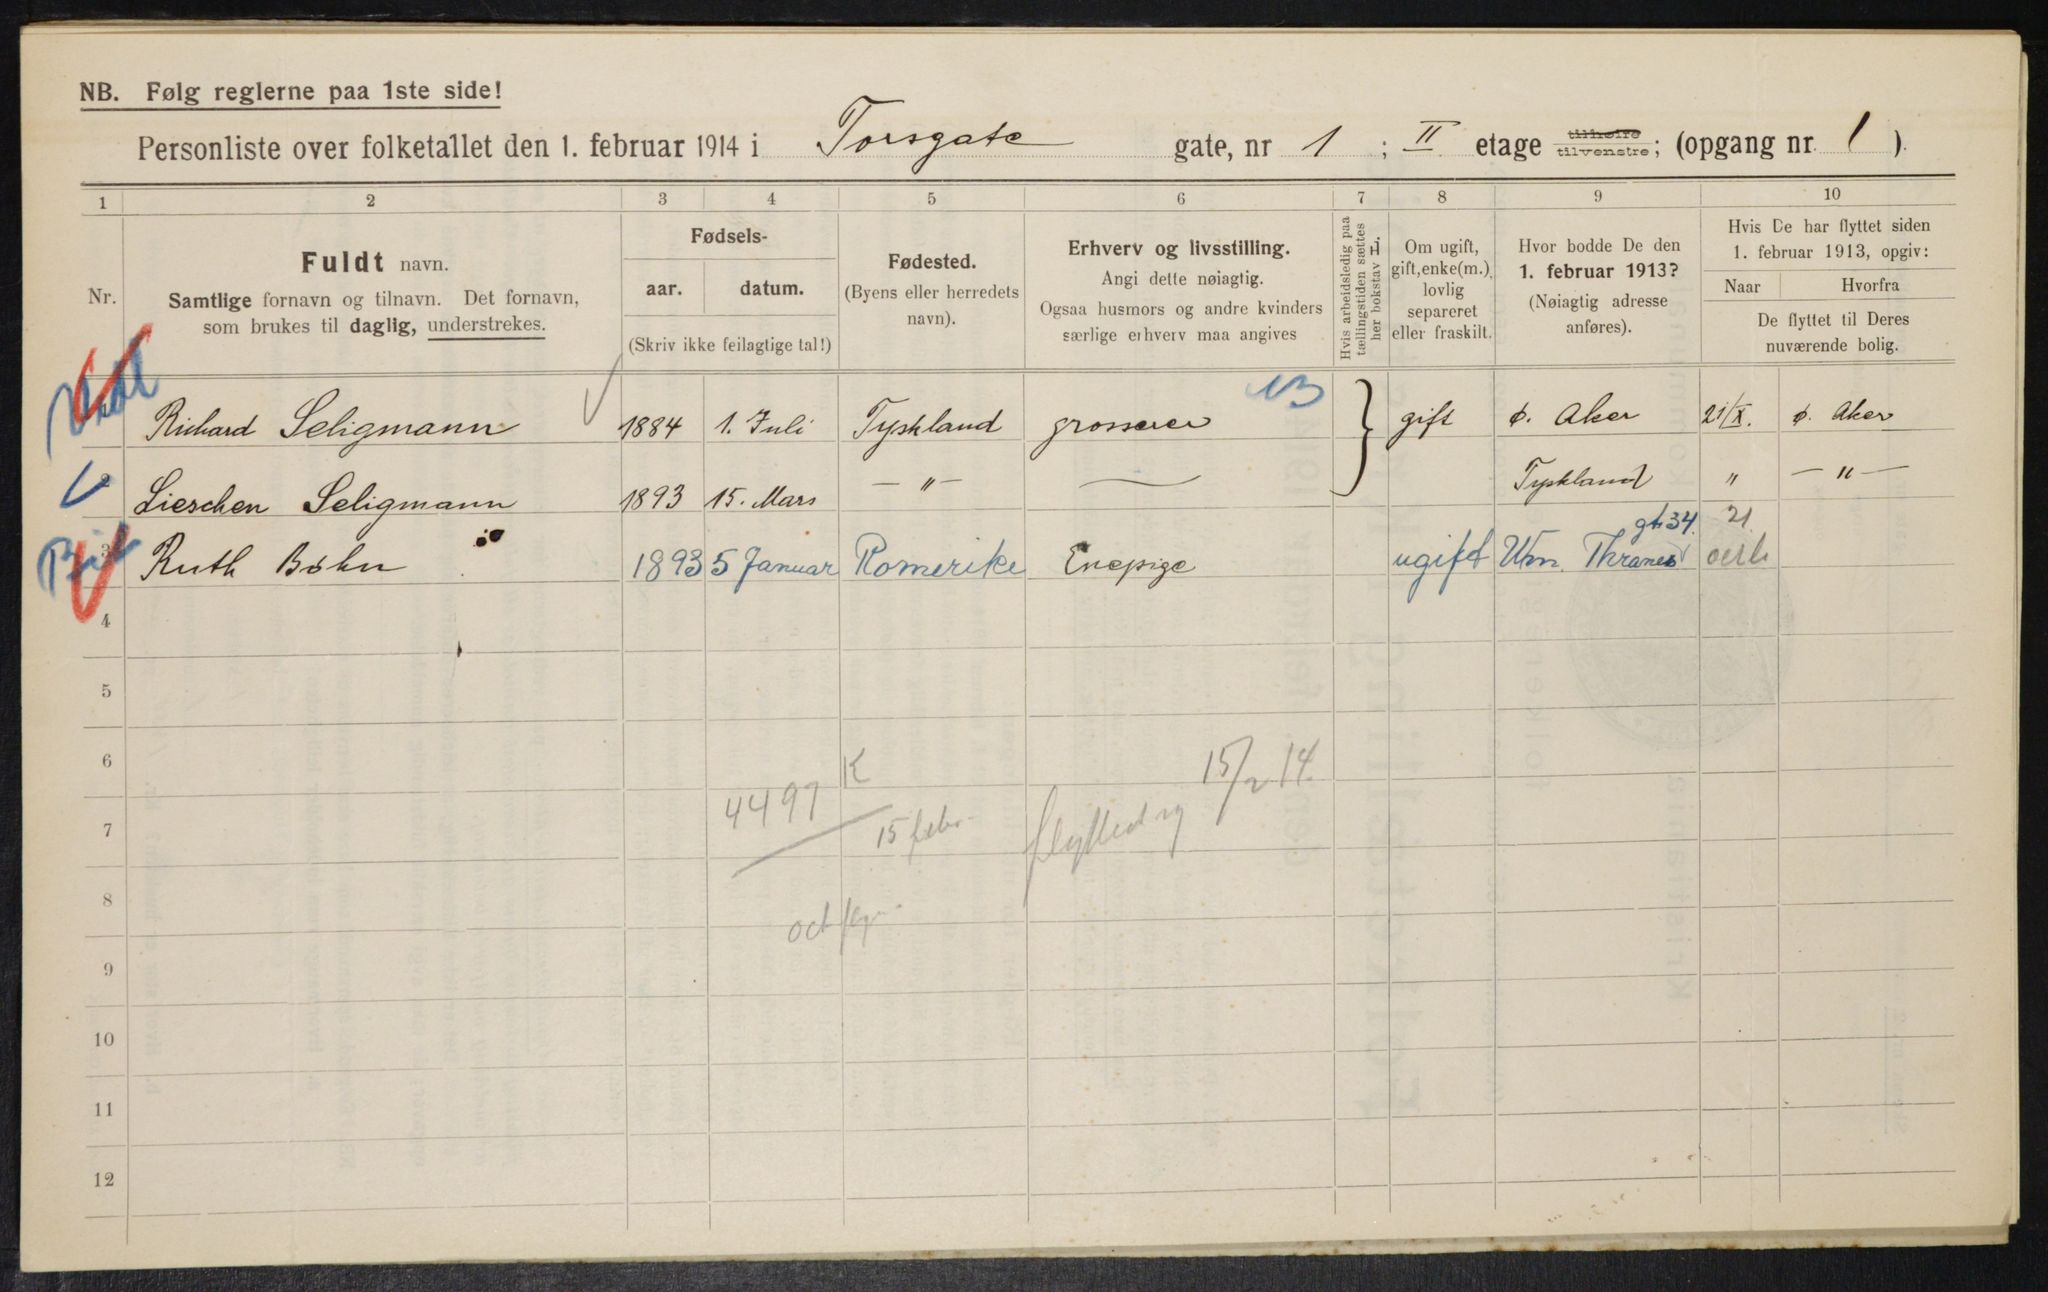 NB. Følg reglerne paa 1ste side!
Personliste over folketallet den 1. februar 1914 i Torsgate gate, nr 1; II etage tilhøire tilvenstre; (opgang nr 1).
1 2 3 4 5 6 7 8 9 10
Nr.
Fuldt navn.
Samtlige fornavn og tilnavn. Det fornavn,
som brukes til daglig, understrekes.
Fødsels-
aar. datum.
(Skriv ikke feilagtige tal!)
Fødested.
(Byens eller herredets
navn).
Erhverv og livsstilling.
Angi dette nøiagtig.
Ogsaa husmors og andre kvinders
særlige erhverv maa angives
Hvis arbeidsledig paa
tællingstiden sættes
her bokstav L.
Om ugift,
gift, enke(m.),
lovlig
separeret
eller fraskilt.
Hvor bodde De den
1. februar 1913?
(Nøiagtig adresse
anføres).
Hvis De har flyttet siden
1. februar 1913, opgiv:
Naar Hvorfra
De flyttet til Deres
nuværende bolig.
13
Richard Seligmann 1884 1. Juli Tyskland grosserer } gift Ø. Aker 21/X. Ø. Aker
2 Lieschen Seligmann 1893 15. Mars — " — — Tyskland " — " —
gt. 34. 21
3 Ruth Bøhn 1893 5 Januar Romerike Enepige ugift Thranes
4
5
6
K 15/2 14.
7 4497 15 febr.
8
9
10
11
12